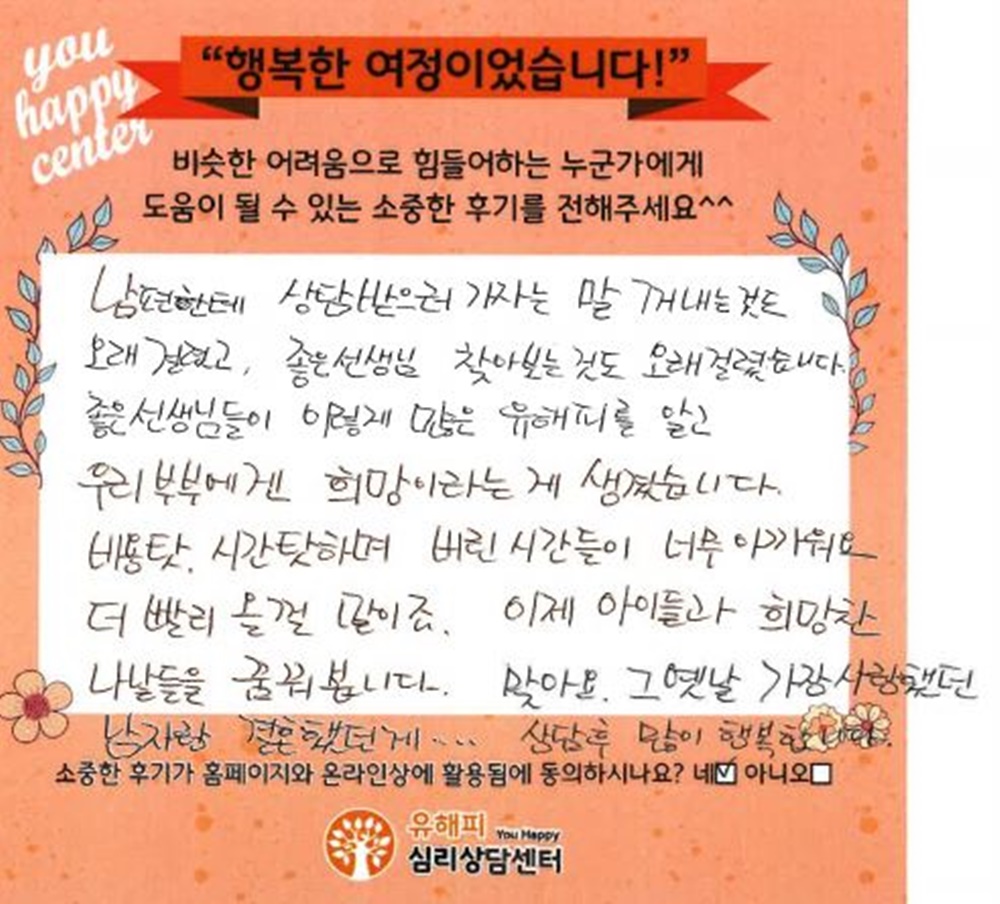 you
happy
center
“행복한 여정이었습니다!”
비슷한 어려움으로 힘들어하는 누군가에게
도움이 될 수 있는 소중한 후기를 전해주세요^^
남편한테 상담받으러 가자는 말 꺼내는것도
오래걸렸고, 좋은선생님 찾아보는것도 오래걸렸습니다.
좋은선생님들이 이렇게 많은 유해피를 알고
우리부부에겐 희망이라는게 생겼습니다.
비용탓, 시간탓하며 버린 시간들이 너무 아까워요
더 빨리 올껄 말이죠. 이제 아이들과 희망찬
나날들을 꿈꿔봅니다. 맞아요. 그옛날 가장사랑했던
남자랑 결혼했던게... 상담후 많이 행복합니다.
소중한 후기가 홈페이지와 온라인상에 활용됨에 동의하시나요? 네☑ 아니오☐
유해피 You Happy
심리상담센터